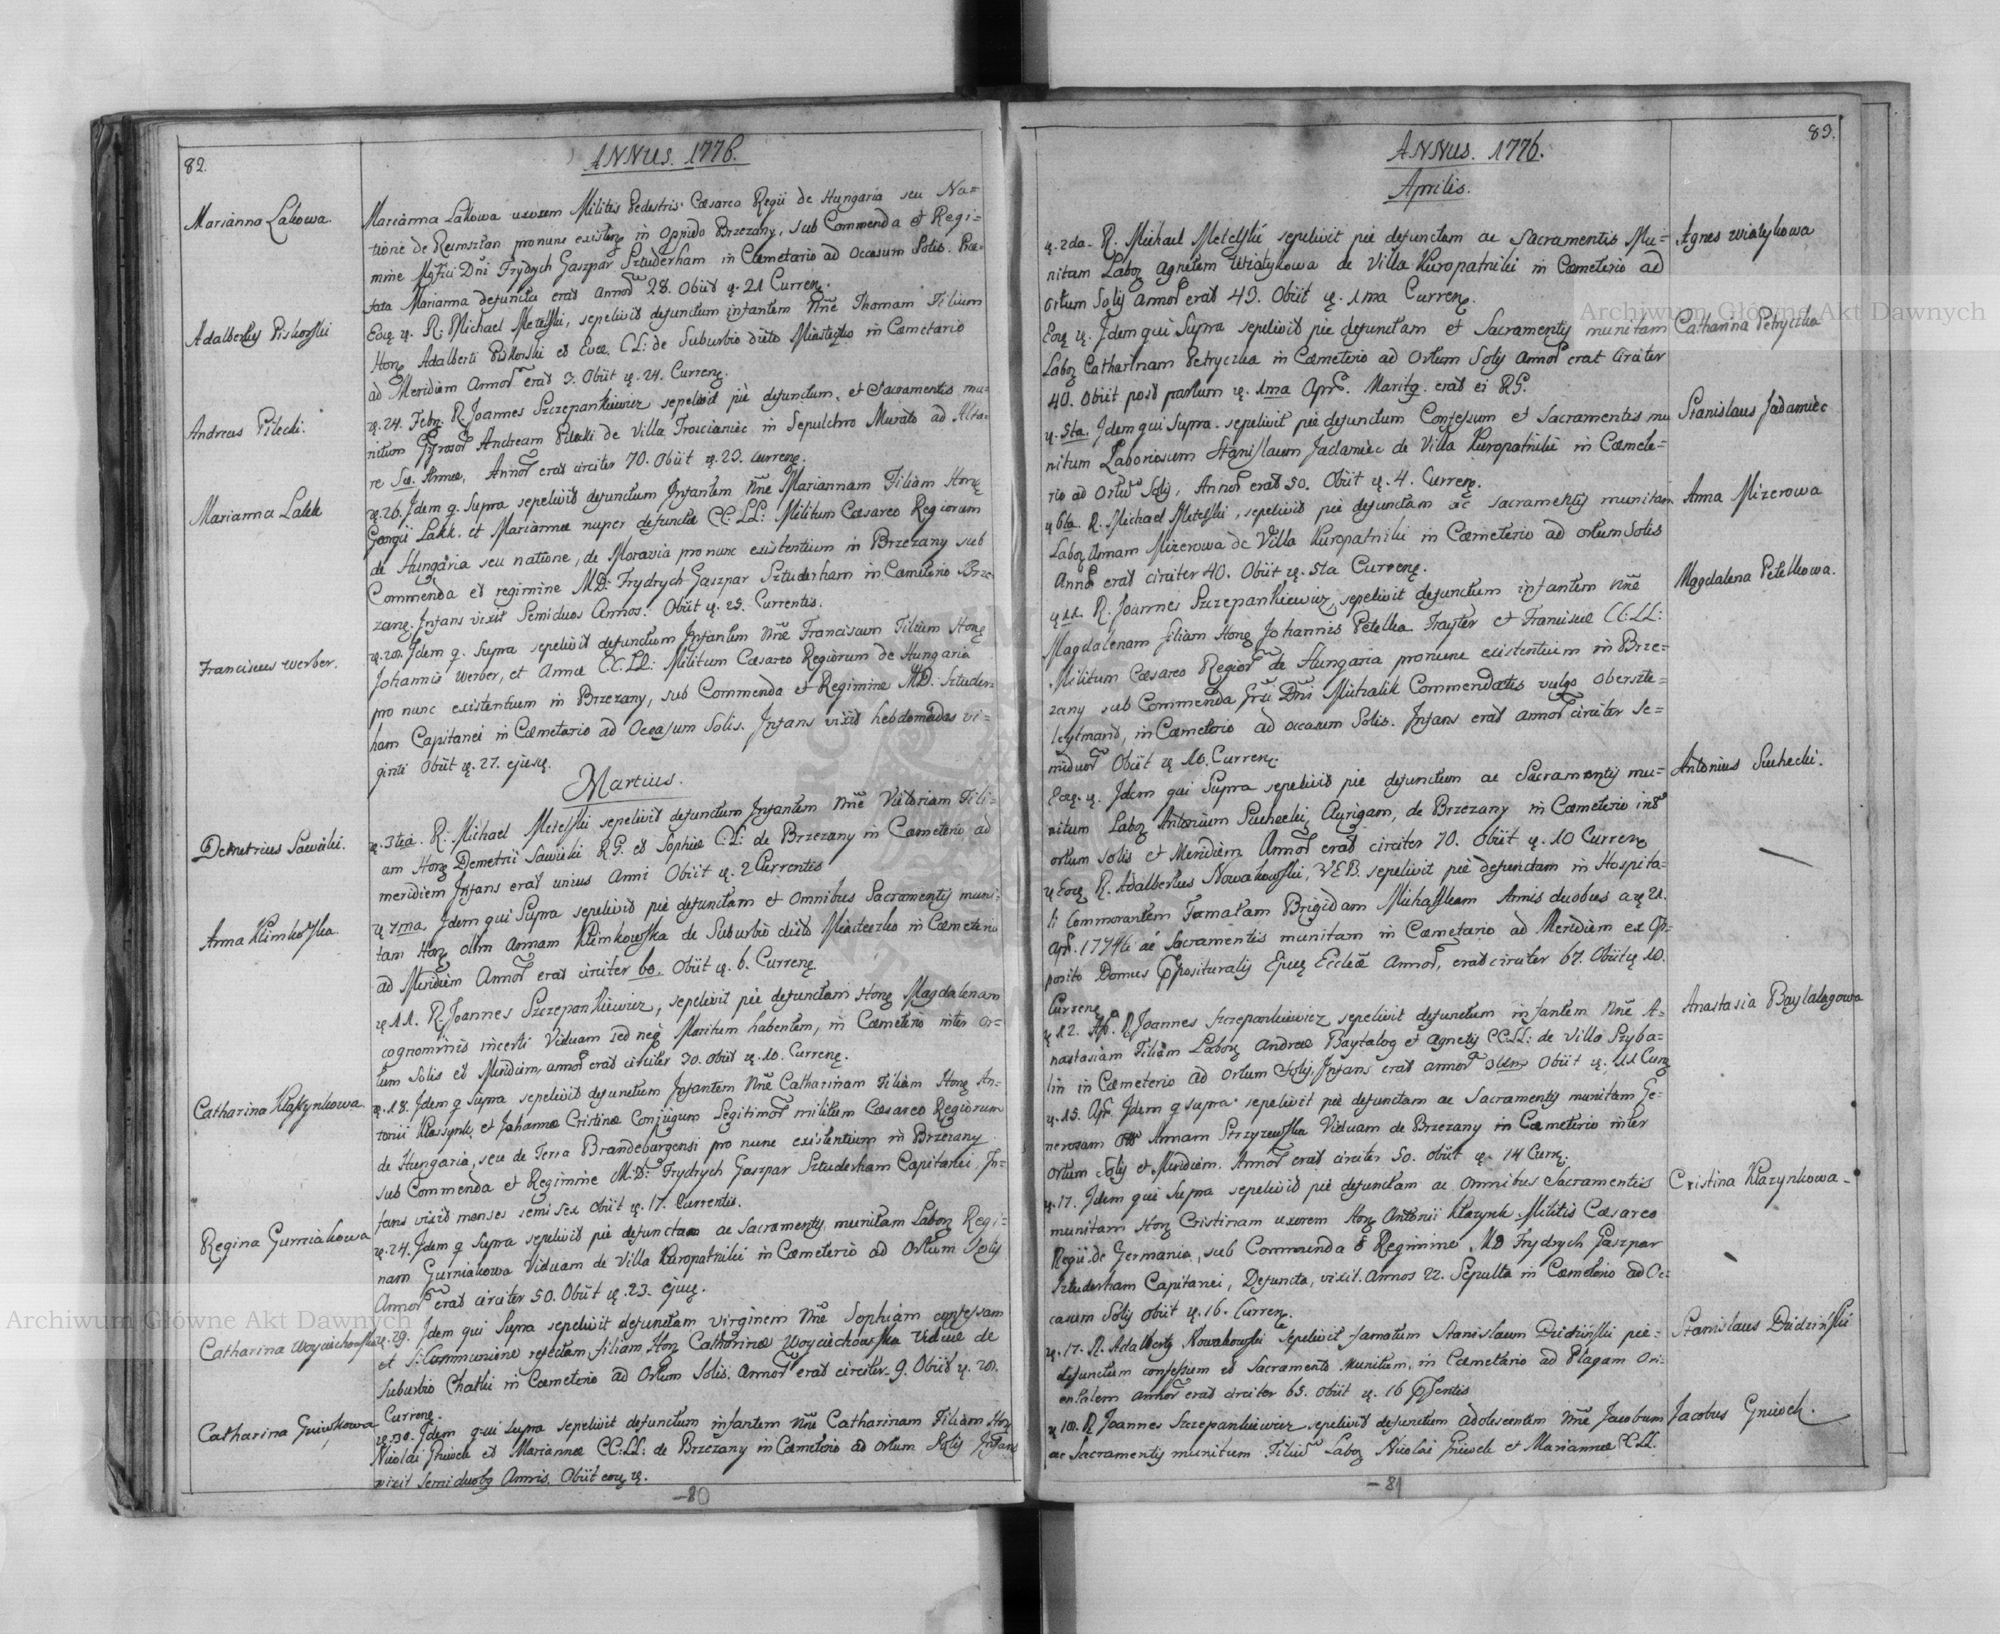 82.
ANNUS. 1776.
Marianna Lakowa.
Marianna Lakowa uxorem Militis Pedestris Cæsareo Regii de Hungaria seu Na=
tione de pro nunc existen in Oppido Brzezany, sub Commenda et Regi=
mine Dni Frydrych Gaszpar Sztuderham in Cæmetario ad Occasum Solis. Præ=
fata Marianna defuncta erat Annor 28. Obiit 21 Curren.
Adalbertus Piskorski
R. Michael Metelski, sepelivit defunctum infantem Nne Thomam Filium
Hon Adalberti Piskorski et Evæ CL: de Suburbio dicto Miasteczko in Cæmetario
ad Meridiem Annor erat 3. Obiit 24. Curren.
Andreas Pilecki.
24. Febr. R. Joannes Szczepankiewicz sepelivit piè defunctum, et Sacramentis mu=
nitum Andream Pilecki de Villa Trościaniec in Sepulchro Murato ad Alta=
re Annæ, Annor erat circiter 70. Obiit 23. curren.
Marianna Lakk
26. Jdem q. Supra sepelivit defunctum Jnfantem Nne Mariannam Filiam Hon
Georgii Lakk. et Mariannæ nuper defunctæ CC: LL: Militum Cæsareo Regiorum
de Hungaria seu natione, de Moravia pro nunc existentium in Brzezany sub
Commenda et regimine MD: Frydrych Gaszpar Sztuderham in Cæmeterio Brze
zan. Jnfans vixit Semiduos Annos. Obiit 25. Currentis.
Franciscus Werber.
28. Jdem q. Supra sepelivit defunctum Jnfantem Nne Franciscum Filium Hon
Johannis Werber, et Annæ CC. LL: Militum Cæsareo Regiorum de Hungaria
pro nunc existentium in Brzezany, sub Commenda et Regimine MD. Sztuder=
ham Capitanei in Cæmetario ad Occasum Solis. Jnfans vixit hebdomadas vi=
ginti Obiit 27. ejusq.
Martius.
Demetrius Sawicki.
3tia. R. Michael Metelski sepelivit defunctum Jnfantem Nne Victoriam Fili=
am Hon Demetrii Sawicki RG. et Sophiæ CL: de Brzezany in Cæmeterio ad
meridiem Jnfans erat unius Anni Obiit 2 Currentis
Anna Klimkowska.
7ma. Jdem qui Supra sepelivit piè defunctam et Omnibus Sacramentis muni=
tam Hon olim Annam Klimkowska de Suburbio dicto Miasteczko in Cæmeterio
ad Meridiem Annor erat circiter 60. Obiit 6. Curren
11. R. Joannes Szczepankiewicz, sepelivit piè defunctam Hon Magdalenam
cognominis incerti Viduam sed neq Maritum habentem, in Cæmeterio inter or=
tum Solis et Meridiem, annor erat circiter 30. Obiit 10. Curren.
Catharina Klaszynkowa.
18. Jdem q Supra sepelivit defunctum Jnfantem Nne Catharinam Filiam Hon An=
tonii Klassynk, et Johannæ Cristinæ Conjugum Legitimor militum Cæsareo Regiorum
de Hungaria, seu de Terra Brandeburgensi pro nunc existentium in Brzezany
sub Commenda et Regimine M.D: Frydrych Gaszpar Sztuderham Capitanei, Jn=
fans vixit menses semi sex Obiit 17. Currentis.
Regina Gurniakowa
24. Jdem q Supra sepelivit piè defunctam ac Sacramentis munitam Labor Regi=
nam Gurniakowa Viduam de Villa Kuropatniki in Cæmeterio ad Ortum Solis
Annor erat circiter 50. Obiit 23. ejus.
Catharina Woyciechowska
29. Jdem qui Supra sepelivit defunctam virginem Nne Sophiam confessam
et S: Communione refectam, filiam Hon Catharinæ Woyciechowska Viduæ de
Suburbio Chatki in Cæmeterio ad Ortum Solis. Annor erat circiter 9. Obiit 28.
Curren.
Catharina Gniwkowa
30. Jdem qui Supra sepelivit defunctum infantem Nne Catharinam Filiam Hon
Nicolai Gniwek et Mariannæ CC:LL: de Brzezany in Cæmeterio ad Ortum Solis Jnfans
vixit Semiduobq Annis. Obiit eoq.
-80
83.
ANNUS. 1776.
Aprilis.
Agnes Wiatykowa
2da. R. Michael Metelski sepelivit piè defunctam ac Sacramentis Mu=
nitam Labor Agnetem Wiatykowa de Villa Kuropatniki in Cæmeterio ad
Ortum Solis Annor erat 43. Obiit 1ma Curren.
Catharina Petryczka
Jdem qui Supra sepelivit piè defunctam et Sacramentis munitam
Labor Catharinam Petryczka in Cæmeterio ad Ortum Solis Annor erat circiter
40. Obiit post partum 1ma Apr. Maritq. erat ei RG.
Stanislaus Jadamiec
5ta. Jdem qui Supra sepelivit piè defunctum Confessum et Sacramentis mu
nitum Laboriosum Stanislaum Jadamiec de Villa Kuropatniki in Cæmete=
rio ad Ortum Solis, Annor erat 50. Obiit 4. Curren.
Anna Mizerowa
6ta. R. Michael Metelski, sepelivit piè defunctam ac sacramentis munitam
Labor Annam Mizerowa de Villa Kuropatniki in Cæmeterio ad ortum Solis
Annor erat circiter 40. Obiit 5ta Curren.
Magdalena Petelkowa.
11. R. Joannes Szczepankiewicz, sepelivit defunctum infantem Nne
Magdalenam filiam Hon Johannis Petelka Frayter et Franciscæ CC:LL:
Militum Cæsareo Regior de Hungaria pro nunc existentium in Brze=
zany sub Commenda Dni Michalik Commendatis vulgo Oberszte=
leytmand, in Cæmeterio ad occasum Solis. Jnfans erat annor circiter Se=
miduor Obiit 10. Curren.
Antonius Suchecki.
Jdem qui Supra sepelivit piè defunctum ac Sacramentis mu=
nitum Labor Antonium Suchecki, Aurigam, de Brzezany in Cæmeterio int
ortum Solis et Meridiem Annor erat circiter 70. Obiit 10 Curren
R. Adalbertus Nowakowski, VEB. sepelivit piè defunctam in Hospita=
li Commorantem Famatam Brigidam Michalkam Annis duobus a 21.
Apr. 1774 ac Sacramentis munitam in Cæmetario ad Meridiem ex Op=
posito Domus Præposituralis Ejus Eccleæ Annor, erat circiter 67. Obiit 10.
Curren.
Anastasia Baytalagowa
12. Apr. R. Joannes Szczepankiewicz sepelivit defunctum infantem Nne A=
nastasiam Filiam Labor Andreæ Baytalog et Agnetis CC.LL: de Villa Szyba=
lin in Cæmeterio ad Ortum Solis, Jnfans erat annor Obiit 11 Curr
15. Apr. Jdem q supra sepelivit piè defunctam ac Sacramentis munitam Ge=
nerosam Annam Strzyzewska Viduam de Brzezany in Cæmeterio inter
Ortum Solis et Meridiem. Annor erat circiter 50. obiit 14 Curr.
Cristina Klazynkowa
17. Jdem qui Supra sepelivit piè defunctam ac Omnibus Sacramentis
munitam Hon Cristinam uxorem Hon Antonii Klazynk Militis Cæsareo
Regii de Germania, sub Commenda & Regimine MD Frydrych Gaszpar
Sztuderham Capitanei, Defuncta, vixit Annos 22. Sepulta in Cæmeterio ad Oc=
casum Solis obiit 16. Curren.
Stanislaus Dzidziński
17. R. Adalbertq Nowakowski sepelivit famatum Stanislaum Dzidziński piè=
defunctum confessum et Sacramento Munitum, in Cæmetario ad Plagam Ori=
entalem annor erat circiter 65. obiit 16 Psentis
Jacobus Gniwek.
18. R. Joannes Szczepankiewicz sepelivit defunctum adolescentem Nne Jacobum
ac Sacramentis munitum Filium Labor Nicolai Gniwek et Mariannæ CC.LL.
-81
Archiwum Główne Akt Dawnych
Archiwum Główne Akt Dawnych